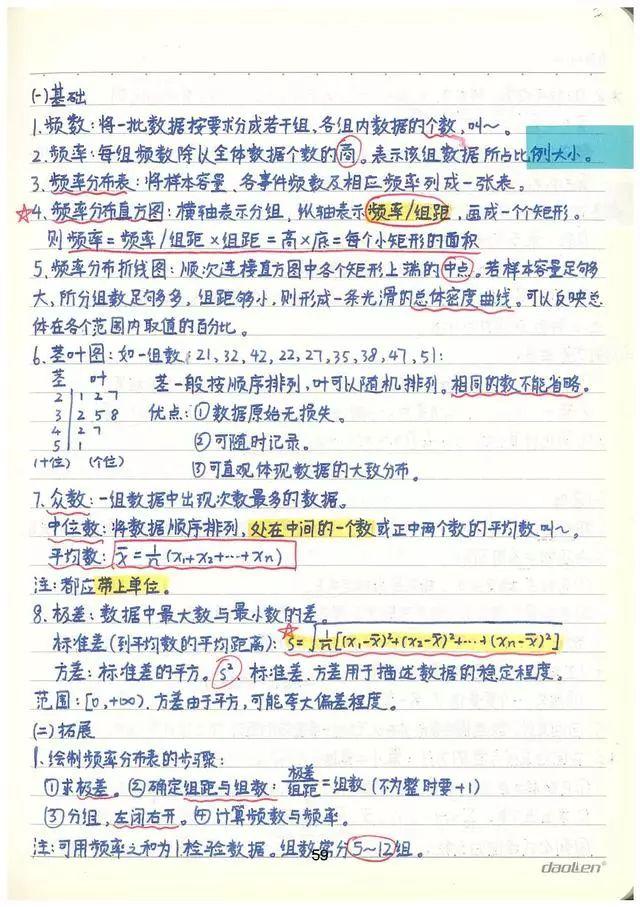 (一)基础
1.频数:将一批数据按要求分成若干组,各组内数据的个数,叫~。
2.频率:每组频数除以全体数据个数的商。表示该组数据所占比例大小。
3.频率分布表:将样本容量、各事件频数及相应频率列成一张表。
☆4.频率分布直方图:横轴表示分组,纵轴表示频率/组距,画成一个个矩形。
则频率=频率/组距×组距=高×底=每个小矩形的面积
5.频率分布折线图:顺次连接直方图中各个矩形上端的中点。若样本容量足够
大,所分组数足够多,组距够小,则形成一条光滑的总体密度曲线。可以反映总
体在各个范围内取值的百分比。
6.茎叶图:如一组数:21,32,42,22,27,35,38,47,51:
茎 叶 茎一般按顺序排列,叶可以随机排列。相同的数不能省略。
2 | 1 2 7
3 | 2 5 8 优点:①数据原始无损失。
4 | 2 7 ②可随时记录。
5 | 1
(十位) (个位) ③可直观体现数据的大致分布。
7.众数:一组数据中出现次数最多的数据。
中位数:将数据顺序排列,处在中间的一个数或正中两个数的平均数叫~。
平均数:x̄=1/n(x₁+x₂+…+xn)
注:都应带上单位。
8.极差:数据中最大数与最小数的差。
标准差(到平均数的平均距离):☆S=√1/n[(x₁-x̄)²+(x₂-x̄)²+…+(xn-x̄)²]
方差:标准差的平方。S² 标准差、方差用于描述数据的稳定程度。
范围:[0,+∞).方差由于平方,可能夸大偏差程度。
(二)拓展
1.绘制频率分布表的步骤:
①求极差。②确定组距与组数:极差/组距=组数(不为整时要+1)
③分组,左闭右开。④计算频数与频率。
注:可用频率之和为1检验数据。组数常分5~12组。
59
daolen